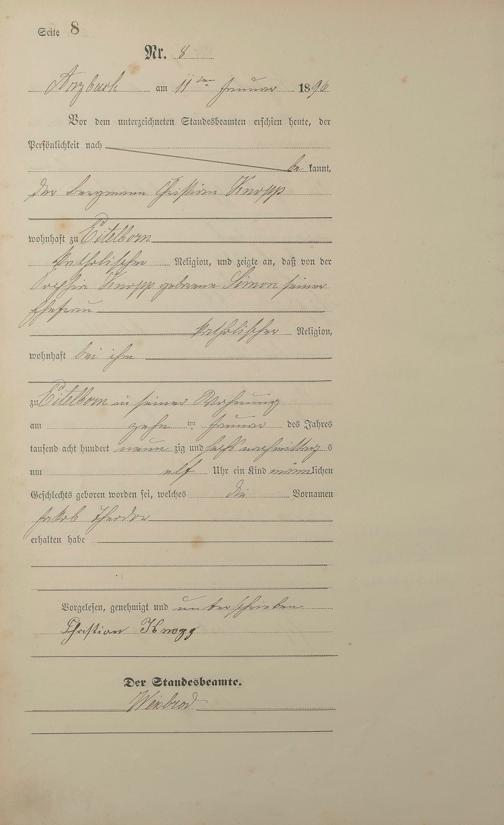 Seite 8
Nr. 8
Arzbach am 11ten Januar 1896
Vor dem unterzeichneten Standesbeamten erschien heute, der
Persönlichkeit nach
be kannt,
der Bergmann Christian Knopp
wohnhaft zu Eitelborn
katholischer Religion, und zeigte an, daß von der
Knopp geborene Simon seiner
Ehefrau
katholischer Religion,
wohnhaft bei ihm
zu Eitelborn in seiner Wohnung
am zehn ten Januar des Jahres
tausend acht hundert neun zig und sechs nachmittag s
um elf Uhr ein Kind männlichen
Geschlechts geboren worden sei, welches die Vornamen
Jakob Theodor
erhalten habe
Vorgelesen, genehmigt und unterschrieben
Christian Knopp
Der Standesbeamte.